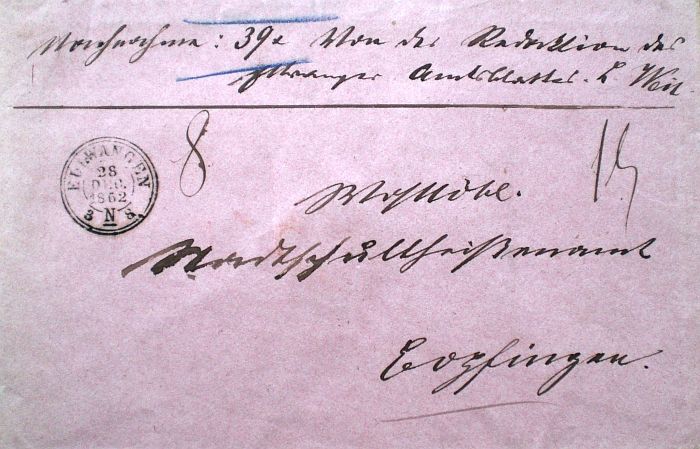 Nachnahme: 39x Von der Redaktion des
Ellwanger Amtsblattes. L. Weil.
ELLWANGEN
28
DEC.
1862
3 N 8
8
15
Wohllöbl.
Stadtschultheißenamt
Bopfingen.